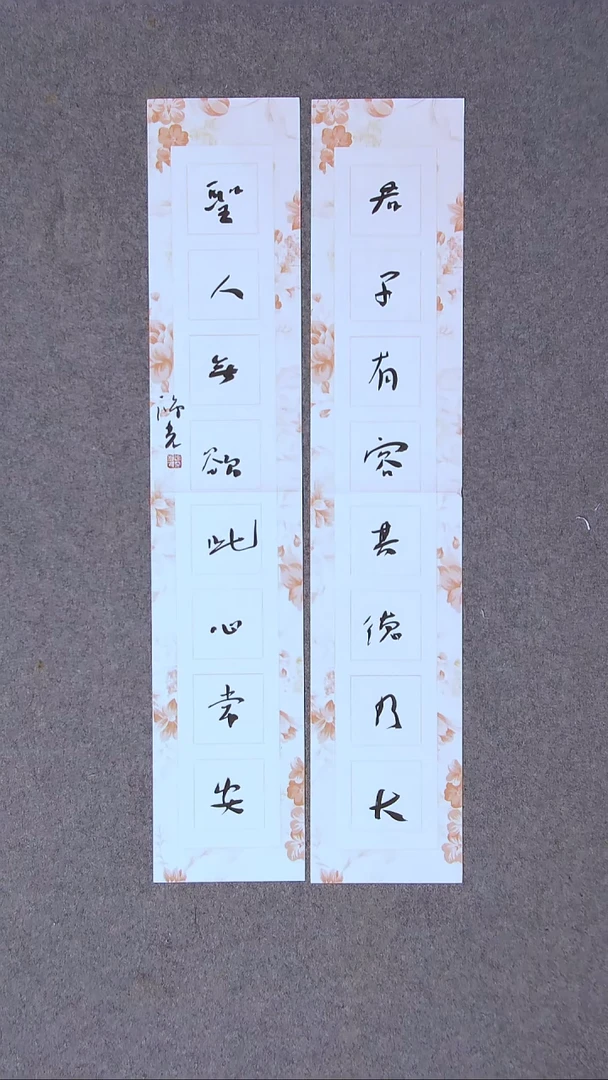 君子有容其德乃大
聖人無欲此心常安